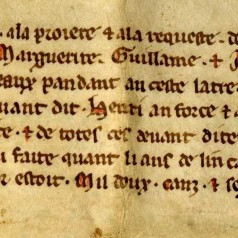 . ala proiere ⁊ ala requeste . de
Marguerite . Guillame . ⁊ J
eaux pandant au ceste lattre
uant dit . Henri an force ⁊ a
te . ⁊ de totes ces deuant dite
i faite quant li ans de lin ca
r estoit . Mil doux . canz . ⁊ se